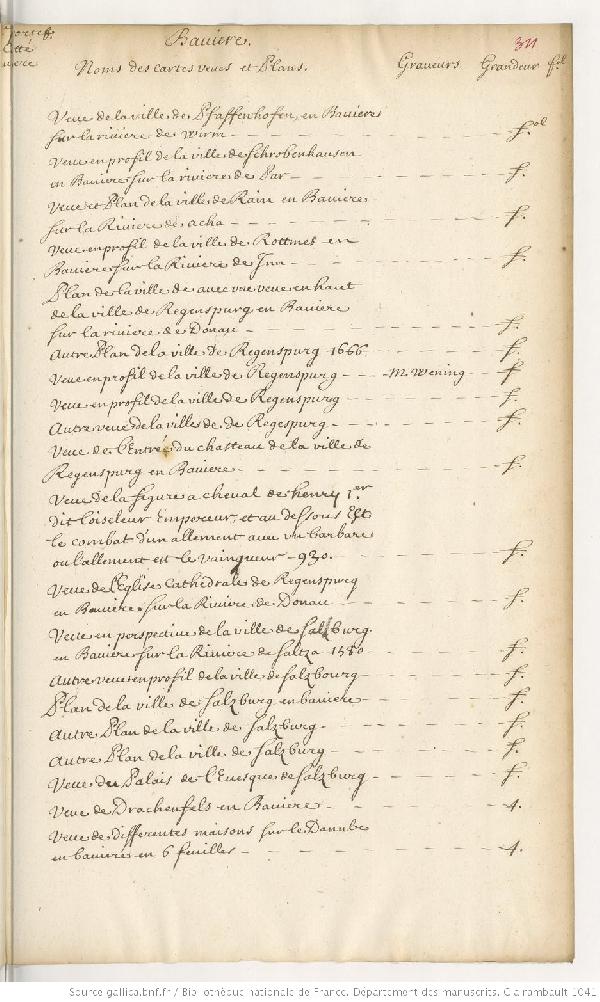 Baviere.
311
Noms des cartes veues et Plans. Graveurs Grandeur
Veue de la ville de Pfaffenhofen, en Baviere
sur la riviere de wirm - f.ol
Veue en profil de la ville de Schrobenhausen
en Baviere sur la riviere de Par - f.
Veue et Plan de la ville de Rain en Baviere
sur la Riviere de acha - f.
Veue en profil de la ville de Rottmes en
Baviere sur la Riviere de Inn - f.
Plan de la ville de avec une veue en haut
de la ville de Regenspurg en Baviere
sur la riviere de Donau - f.
Autre Plan de la ville de Regenspurg 1666 f.
Veue en profil de la ville de Regenspurg - M. Wening - f
Veue en profil de la ville de Regenspurg - f.
Autre veue de la ville de de Regespurg - f.
Veue de l'Entrée du chasteau de la ville de
Regenspurg en Baviere - f.
Veue de la figure a cheval de henry 1.er
dit l'oiseleur Empereur, et au dessous Est
le combat d'un allement avec un barbare
ou l'allement est le vainqueur - 930. - f.
Veue de l'Eglise Cathedrale de Regenspurg
en Baviere sur la Riviere de Donau - f.
Veue en perspective de la ville de Salzburg
en Baviere sur la Riviere de Saltza 1580 - f.
Autre veue en profil de la ville de Salzbourg - f.
Plan de la ville de Salzburg en baviere - f.
Autre Plan de la ville de Salzburg - f.
Autre Plan de la ville de Salzburg - f.
Veue du Palais de l'Evesque de Salzburg - f.
Veue de Drachenfels en Baviere - 4.
Veue de differentes maisons sur le Danube
en baviere en 6 feuilles - 4.
Source gallica.bnf.fr / Bibliothèque nationale de France. Département des manuscrits. Clairambault 1041